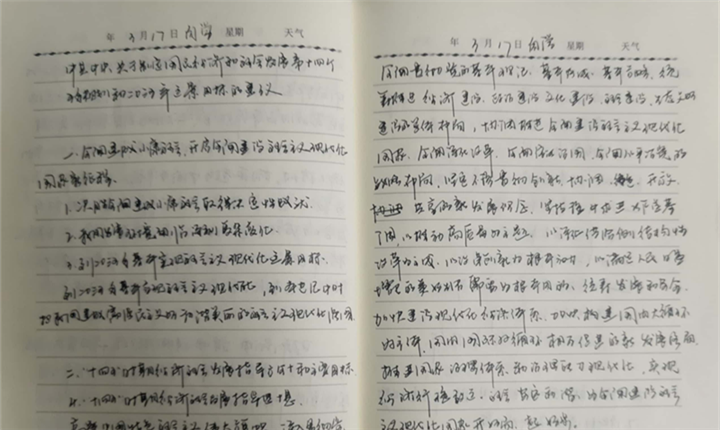 年 3月17日 周四 星期 天气
中共中央关于制定国民经济和社会发展第十四个
五年规划和二〇三五年远景目标的建议
一、全面建成小康社会,开启全面建设社会主义现代化
国家新征程
1. 决胜全面建成小康社会取得决定性成就
2. 我国发展环境面临深刻复杂变化
3. 到2035年基本实现社会主义现代化远景目标
到2035年基本实现社会主义现代化,到本世纪中叶
把我国建成富强民主文明和谐美丽的社会主义现代化强国
二、"十四五"时期经济社会发展指导方针和主要目标
4. "十四五"时期经济社会发展指导思想
年 3月17日 星期 天气
全面贯彻党的基本理论、基本路线、基本方略,统
筹推进经济建设、政治建设、文化建设、社会建设、生态文明
建设的总体布局,协调推进全面建设社会主义现代化
国家、全面深化改革、全面依法治国、全面从严治党的
战略布局,坚定不移贯彻创新、协调、绿色、开放、
共享的新发展理念,坚持稳中求进工作总基
调,以推动高质量发展为主题,以深化供给侧结构性
改革为主线,以改革创新为根本动力,以满足人民日益
增长的美好生活需要为根本目的,统筹发展和安全,
加快建设现代化经济体系,加快构建以国内大循环
为主体、国内国际双循环相互促进的新发展格局,
推进国家治理体系和治理能力现代化,实现
经济行稳致远、社会安定和谐,为全面建设社会
主义现代化国家开好局、起好步。